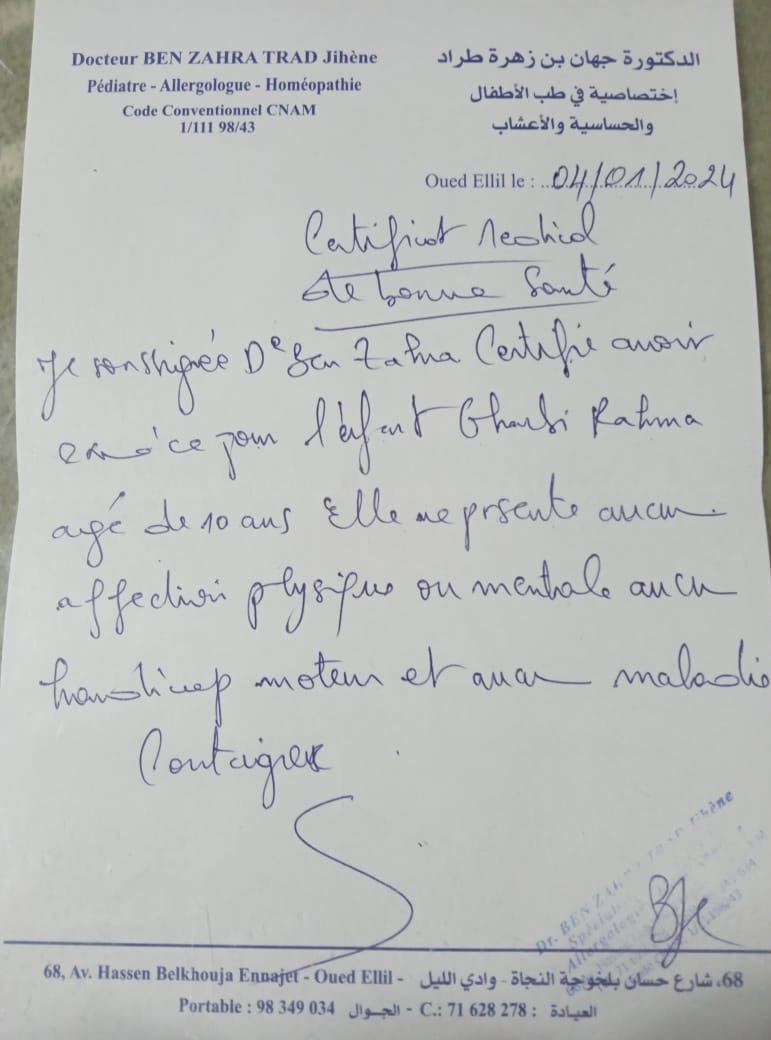 Docteur BEN ZAHRA TRAD Jihène
Pédiatre - Allergologue - Homéopathie
Code Conventionnel CNAM
1/111 98/43
الدكتورة جهان بن زهرة طراد
إختصاصية في طب الأطفال
والحساسية والأعشاب
Oued Ellil le : 04/01/2024
Certificat Medical
de bonne Santé
Je sousignée Dr Ben Zahra Certifie avoir
ce jour l'enfant Gharbi Rahma
agé de 10 ans Elle ne présente aucun
affection physique ou mentale aucun
handicap moteur et aucun maladie
Contagieux
Dr. BEN ZAHRA TRAD Jihène
68, Av. Hassen Belkhouja Ennajet - Oued Ellil - 68، شارع حسان بلخوجة النجاة - وادي الليل
Portable : 98 349 034 الجوال - C.: 71 628 278 : العيادة